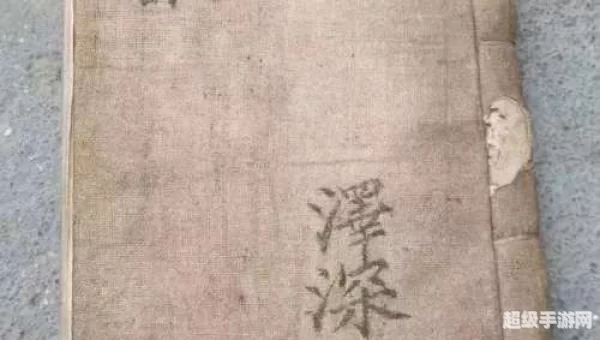 澤深
超级手游网